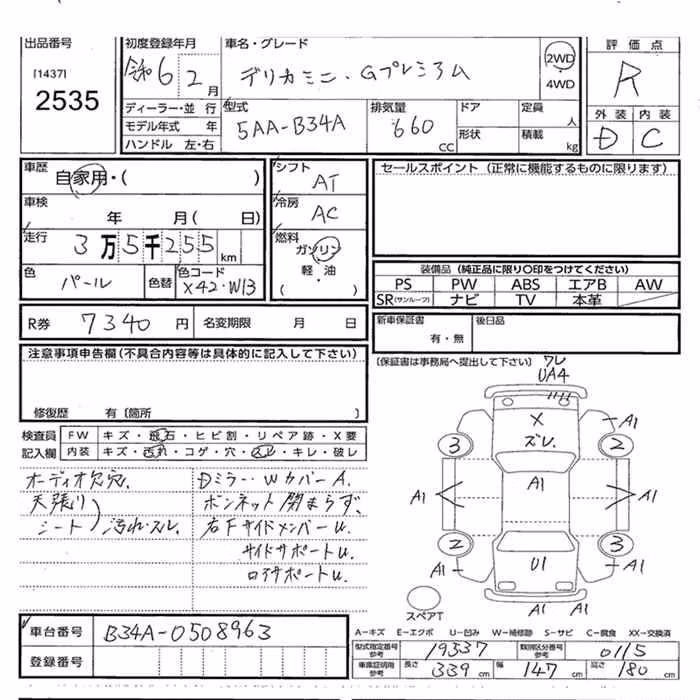 出品番号
[1437]
2535
初度登録年月
令和6 2 月
車名・グレード
デリカミニ・Gプレミアム
2WD
・
4WD
評価点
R
外装 内装
D C
ディーラー・並行
モデル年式 年
ハンドル 左・右
型式
5AA-B34A
排気量
660
CC
ドア
形状
定員
人
積載
kg
車歴
自家用・( )
車検
年 月( 日)
走行
3万5千255
km
色
パール
色替
色コード
X42・W13
シフト
AT
冷房
AC
燃料
ガソリン
軽・油
( )
セールスポイント (正常に機能するものに限ります)
装備品 (純正品に限り○印をつけてください)
PS PW ABS エアB AW
SR(サンルーフ) ナビ TV 本革
R券 7340 円 名変期限 月 日
新車保証書
有・無
後日品
(保証書は事務局へ提出して下さい)
注意事項申告欄(不具合内容等は具体的に記入して下さい)
修復歴 有〔箇所 〕
検査員
記入欄
FW キズ・飛石・ヒビ割・リペア跡・X要
内装 キズ・汚れ・コゲ・穴・スレ・キレ・破レ
オーディオ欠穴.
天張り
シート 汚れ・スレ.
Dミラー・WカバーA.
ボンネット閉まらず.
右Fサイドメンバーu.
サイドサポートu.
ロアサポートu.
ワレ
UA4
X
ズレ.
A1
3
2
A1
A1
A1
2
3
U1
A1
A1
A1
A1
スペアT
車台番号 B34A-0508963
登録番号
A−キズ E−エクボ U−凹み W−補修跡 S−サビ C−腐食 XX−交換済
型式指定番号
参考
19337
類別区分番号
参考
0115
車庫証明用
参考
長さ 339 cm 幅 147 cm 高さ 180 cm